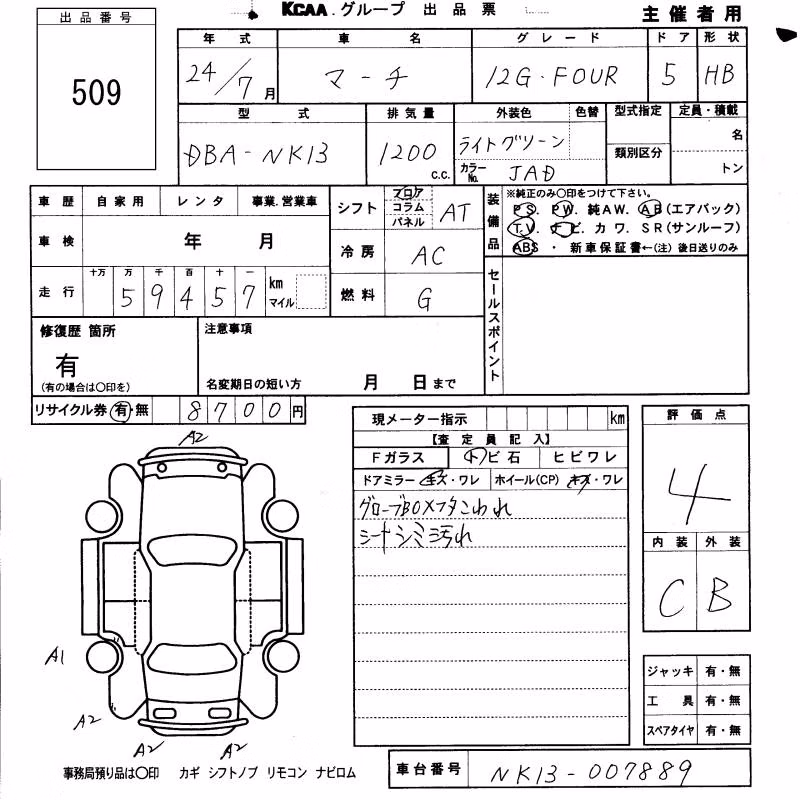 出品番号
509
KCAA.グループ 出品票
主催者用
年式 車名 グレード ドア 形状
24/7月 マーチ 12G・FOUR 5 HB
型式 排気量 外装色 色替 型式指定 定員・積載
DBA-NK13 1200 C.C. ライトグリーン 名
カラーNo. JAD 類別区分 トン
車歴 自家用 レンタ 事業.営業車
シフト フロア コラム パネル AT
装備品
※純正のみ〇印をつけて下さい。
PS. PW. 純AW. AB(エアバック)
TV. ナビ. カワ. SR(サンルーフ)
ABS ・ 新車保証書←(注) 後日送りのみ
車検 年 月
冷房 AC
走行 十万 万 千 百 十 一
59457 km マイル
燃料 G
セールスポイント
修復歴 箇所
有
(有の場合は〇印を)
注意事項
名変期日の短い方 月 日まで
リサイクル券 有・無 8700円
現メーター指示 km
【査定員記入】
Fガラス トビ石 ヒビワレ
ドアミラー キズ・ワレ ホイール(CP) キズ・ワレ
グローブBOXフタこわれ
シートシミ汚れ
評価点
4
内装 外装
C B
A2
A1
A2
A2 A2
ジャッキ 有・無
工具 有・無
スペアタイヤ 有・無
事務局預り品は〇印 カギ シフトノブ リモコン ナビロム
車台番号 NK13-007889